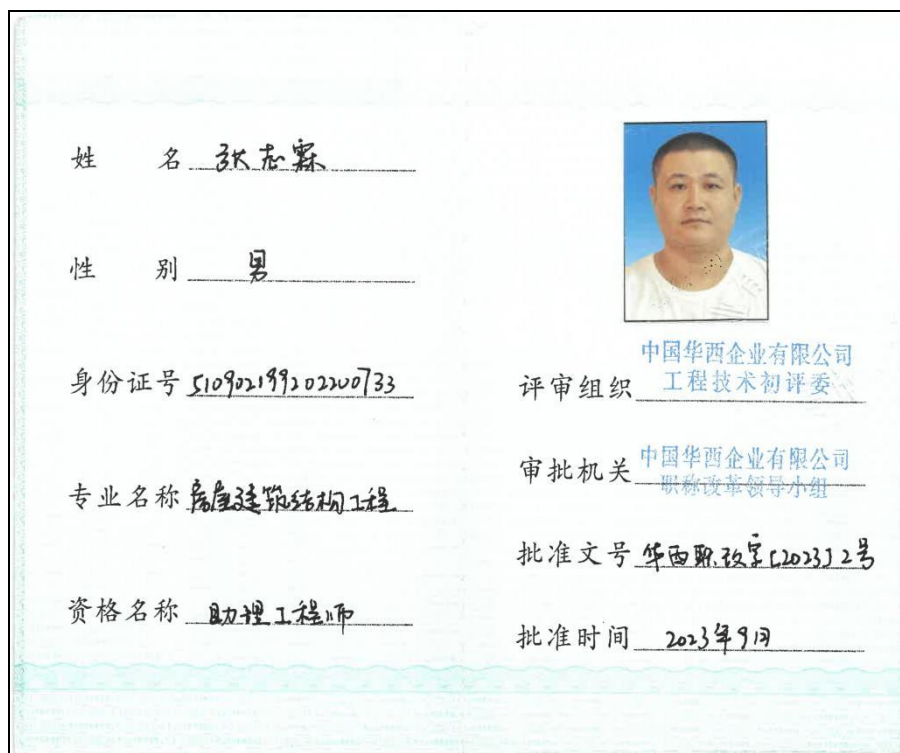 姓名 张志霖
性别 男
身份证号 510902199202200733
专业名称 房屋建筑结构工程
资格名称 助理工程师
中国华西企业有限公司
评审组织 工程技术初评委
中国华西企业有限公司
审批机关 职称改革领导小组
批准文号 华西职改字[2023]2号
批准时间 2023年9月